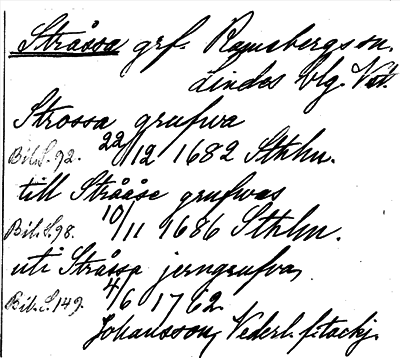 Stråssa grf. Ramsbergs sn.
Lindes blg. Vstl.
Strossa grufwa
Bil. S. 92. 22/12 1682 Sthlm.
till Strååse grufwas
Bil. S. 98. 10/11 1686 Sthlm.
uti Stråssa jerngrufva,
Bil. S. 149. 4/6 1762.
Johansson, Vederl. f. tackj.